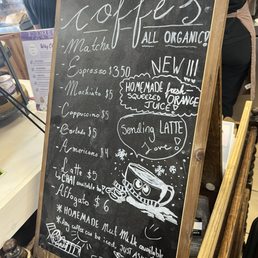 coffe's
ALL ORGANIC!
- Matcha
- Espresso $3.50
- Machiato $5
- Cappuccino $5
- Cortado $5
- Americano $4
- Latte $5
CAN available
- Affogato $6
NEW!!!
HOMEMADE fresh
SQUEEZED ORANGE
JUICE!
Sending LATTE
Love!
* HOMEMADE
Milk available
can be iced
JUST